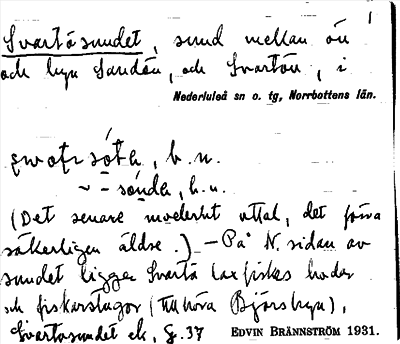 Svartåsundet, sund mellan ön
och byn Sandön, och Svartön, i
Nederluleå sn o. tg, Norrbottens län.
b. n.
~ - sónda, b. n.
(Det senare modernt uttal, det förra
säkerligen äldre.) — På N. sidan av
sundet ligger Svartå laxfiskebodar
och fiskarstugor (tillhöra Björsbyn),
Svartosundet ek, G. 37 EDVIN BRÄNNSTRÖM 1931.